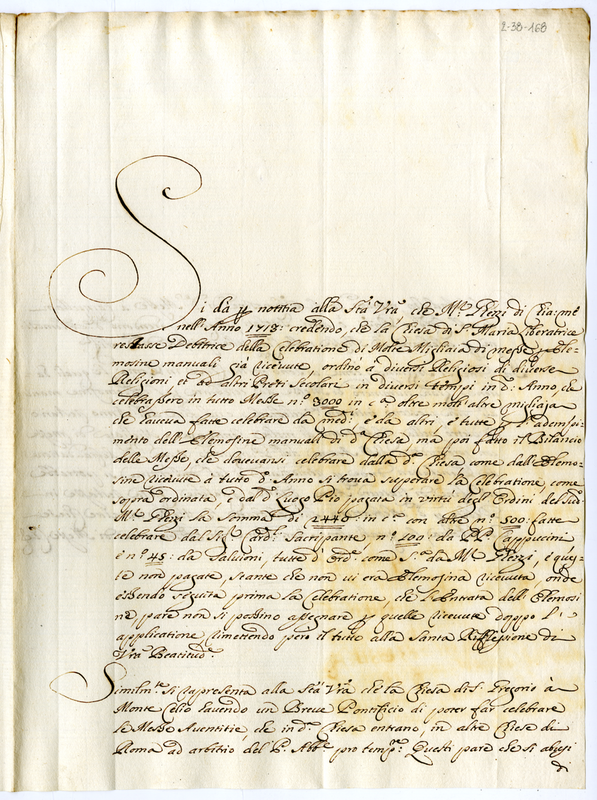 2-38-168
Si dà p notitia alla Stà Vrà, che Mr. Pezzi di Chia: mê
nell'Anno 1718: credendo, che la Chiesa di S. Maria Liberatrice
restasse Debitrice della Celebratione di Molte Migliaia di messe p Ele-
mosine manuali già ricevute, ordinò a diversi Religiosi di diverse
Religioni et ad altri Preti Secolari in diversi tempi in do: Anno, che
celebrassero in tutto Messe no 3000 in ca oltre molte altre migliaja
che haveva fatte celebrare da med:, e da altri, e tutte p l'adempi-
mento dell'Elemosine manuali di da Chiesa ma poi fatto il Bilancio
delle Messe, che dovevansi celebrare dalla da Chiesa come dalle Elemo-
sine ricevute a tutto do: Anno si trova superare la Celebratione come
sopra ordinata, e dal do Luogo Pio pagata in virtù degl'Ordini del Sud:
Mr. Pezzi la Somma di 2440: in ca con altre no 500: fatte
celebrare dal Sig. Card: Sacripante, no 100: da PP. Cappuccini
e no 45: da Salvioni, tutte d'ord: come Sa da Mr. Pezzi, e ques-
te non pagate, stante che non vi era Elemosina ricevuta, onde
essendo seguita prima la Celebratione, che l'Entrata dell'Elemosi
na, pare non si possino assegnare p quelle ricevute doppo l'
applicatione rimettendo però il tutto alla Santa Riflessione di
Vrà Beatitud:
Similmte si rapresenta alla Stà Vrà che la Chiesa di S. Gregorio à
Monte Celio havendo un Breve Pontificio di poter far celebrare
le Messe Aventitie, che in da Chiesa entrano, in altre Chiese di
Roma ad arbitrio del P. Abbe pro tempe: Questi pare che si abusi
di